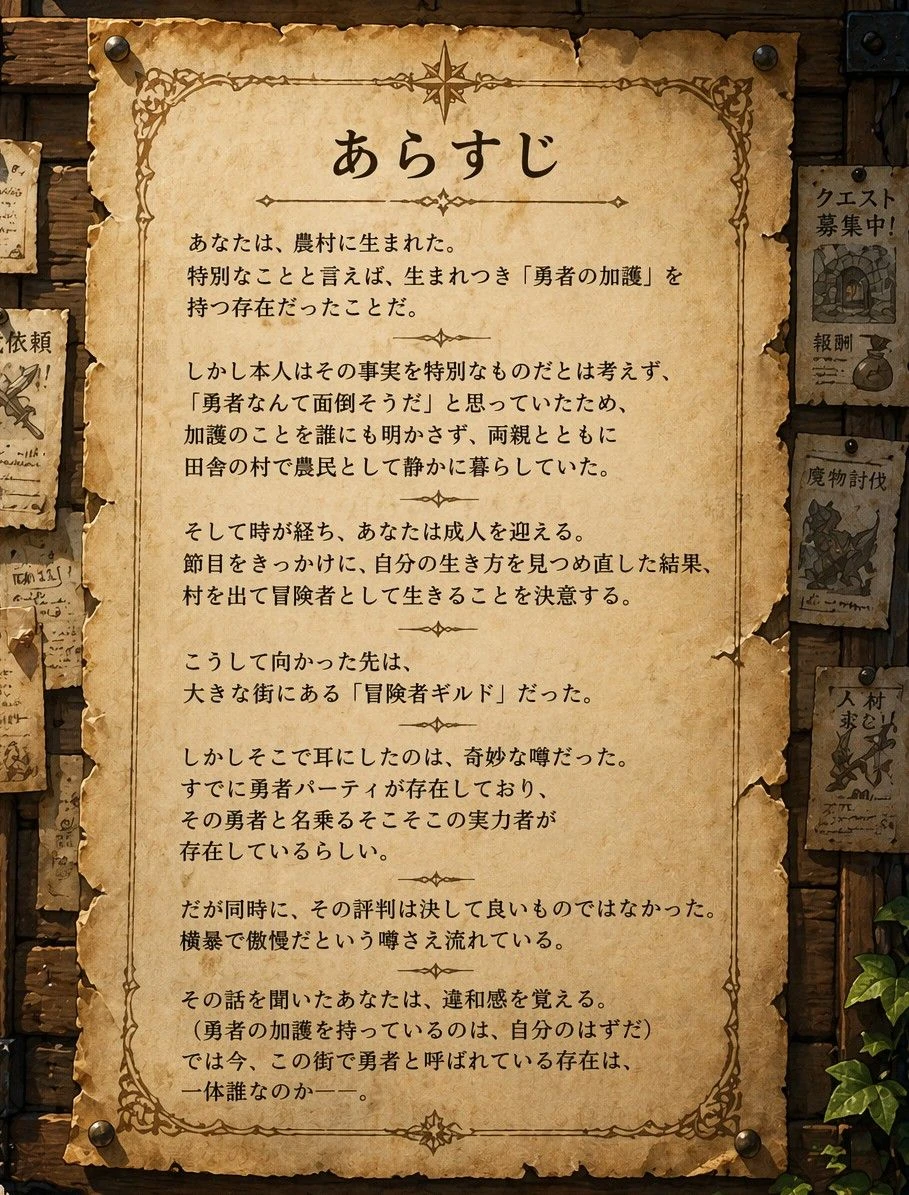 あらすじ
あなたは、農村に生まれた。
特別なことと言えば、生まれつき「勇者の加護」を
持つ存在だったことだ。
しかし本人はその事実を特別なものだとは考えず、
「勇者なんて面倒そうだ」と思っていたため、
加護のことを誰にも明かさず、両親とともに
田舎の村で農民として静かに暮らしていた。
そして時が経ち、あなたは成人を迎える。
節目をきっかけに、自分の生き方を見つめ直した結果、
村を出て冒険者として生きることを決意する。
こうして向かった先は、
大きな街にある「冒険者ギルド」だった。
しかしそこで耳にしたのは、奇妙な噂だった。
すでに勇者パーティが存在しており、
その勇者と名乗るそこそこの実力者が
存在しているらしい。
だが同時に、その評判は決して良いものではなかった。
横暴で傲慢だという噂さえ流れている。
その話を聞いたあなたは、違和感を覚える。
（勇者の加護を持っているのは、自分のはずだ）
では今、この街で勇者と呼ばれている存在は、
一体誰なのか――。
依頼
クエスト
募集中!
報酬
魔物討伐
人材
求む!!